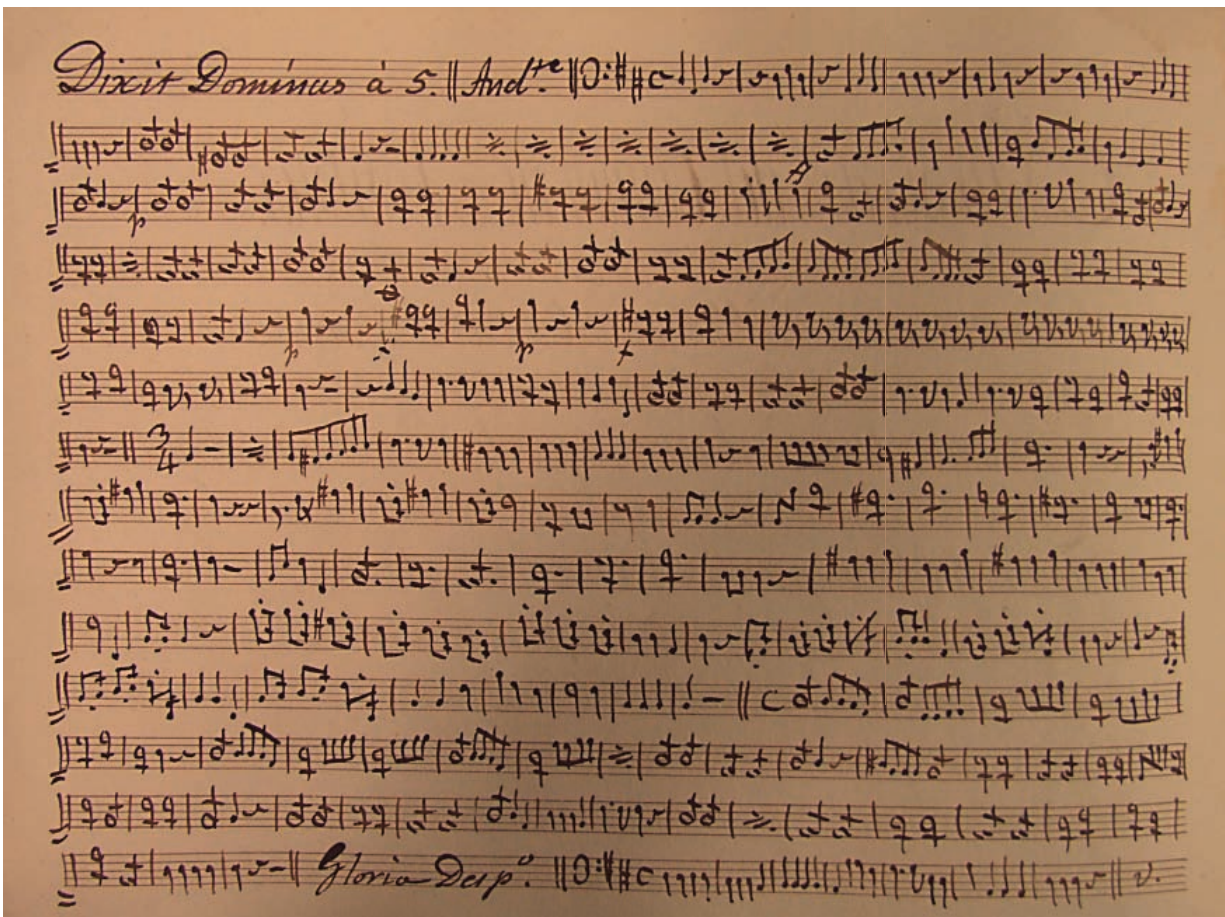 Dixit Dominus à 5. Andte
p
p p
3/4
Gloria Desp.o